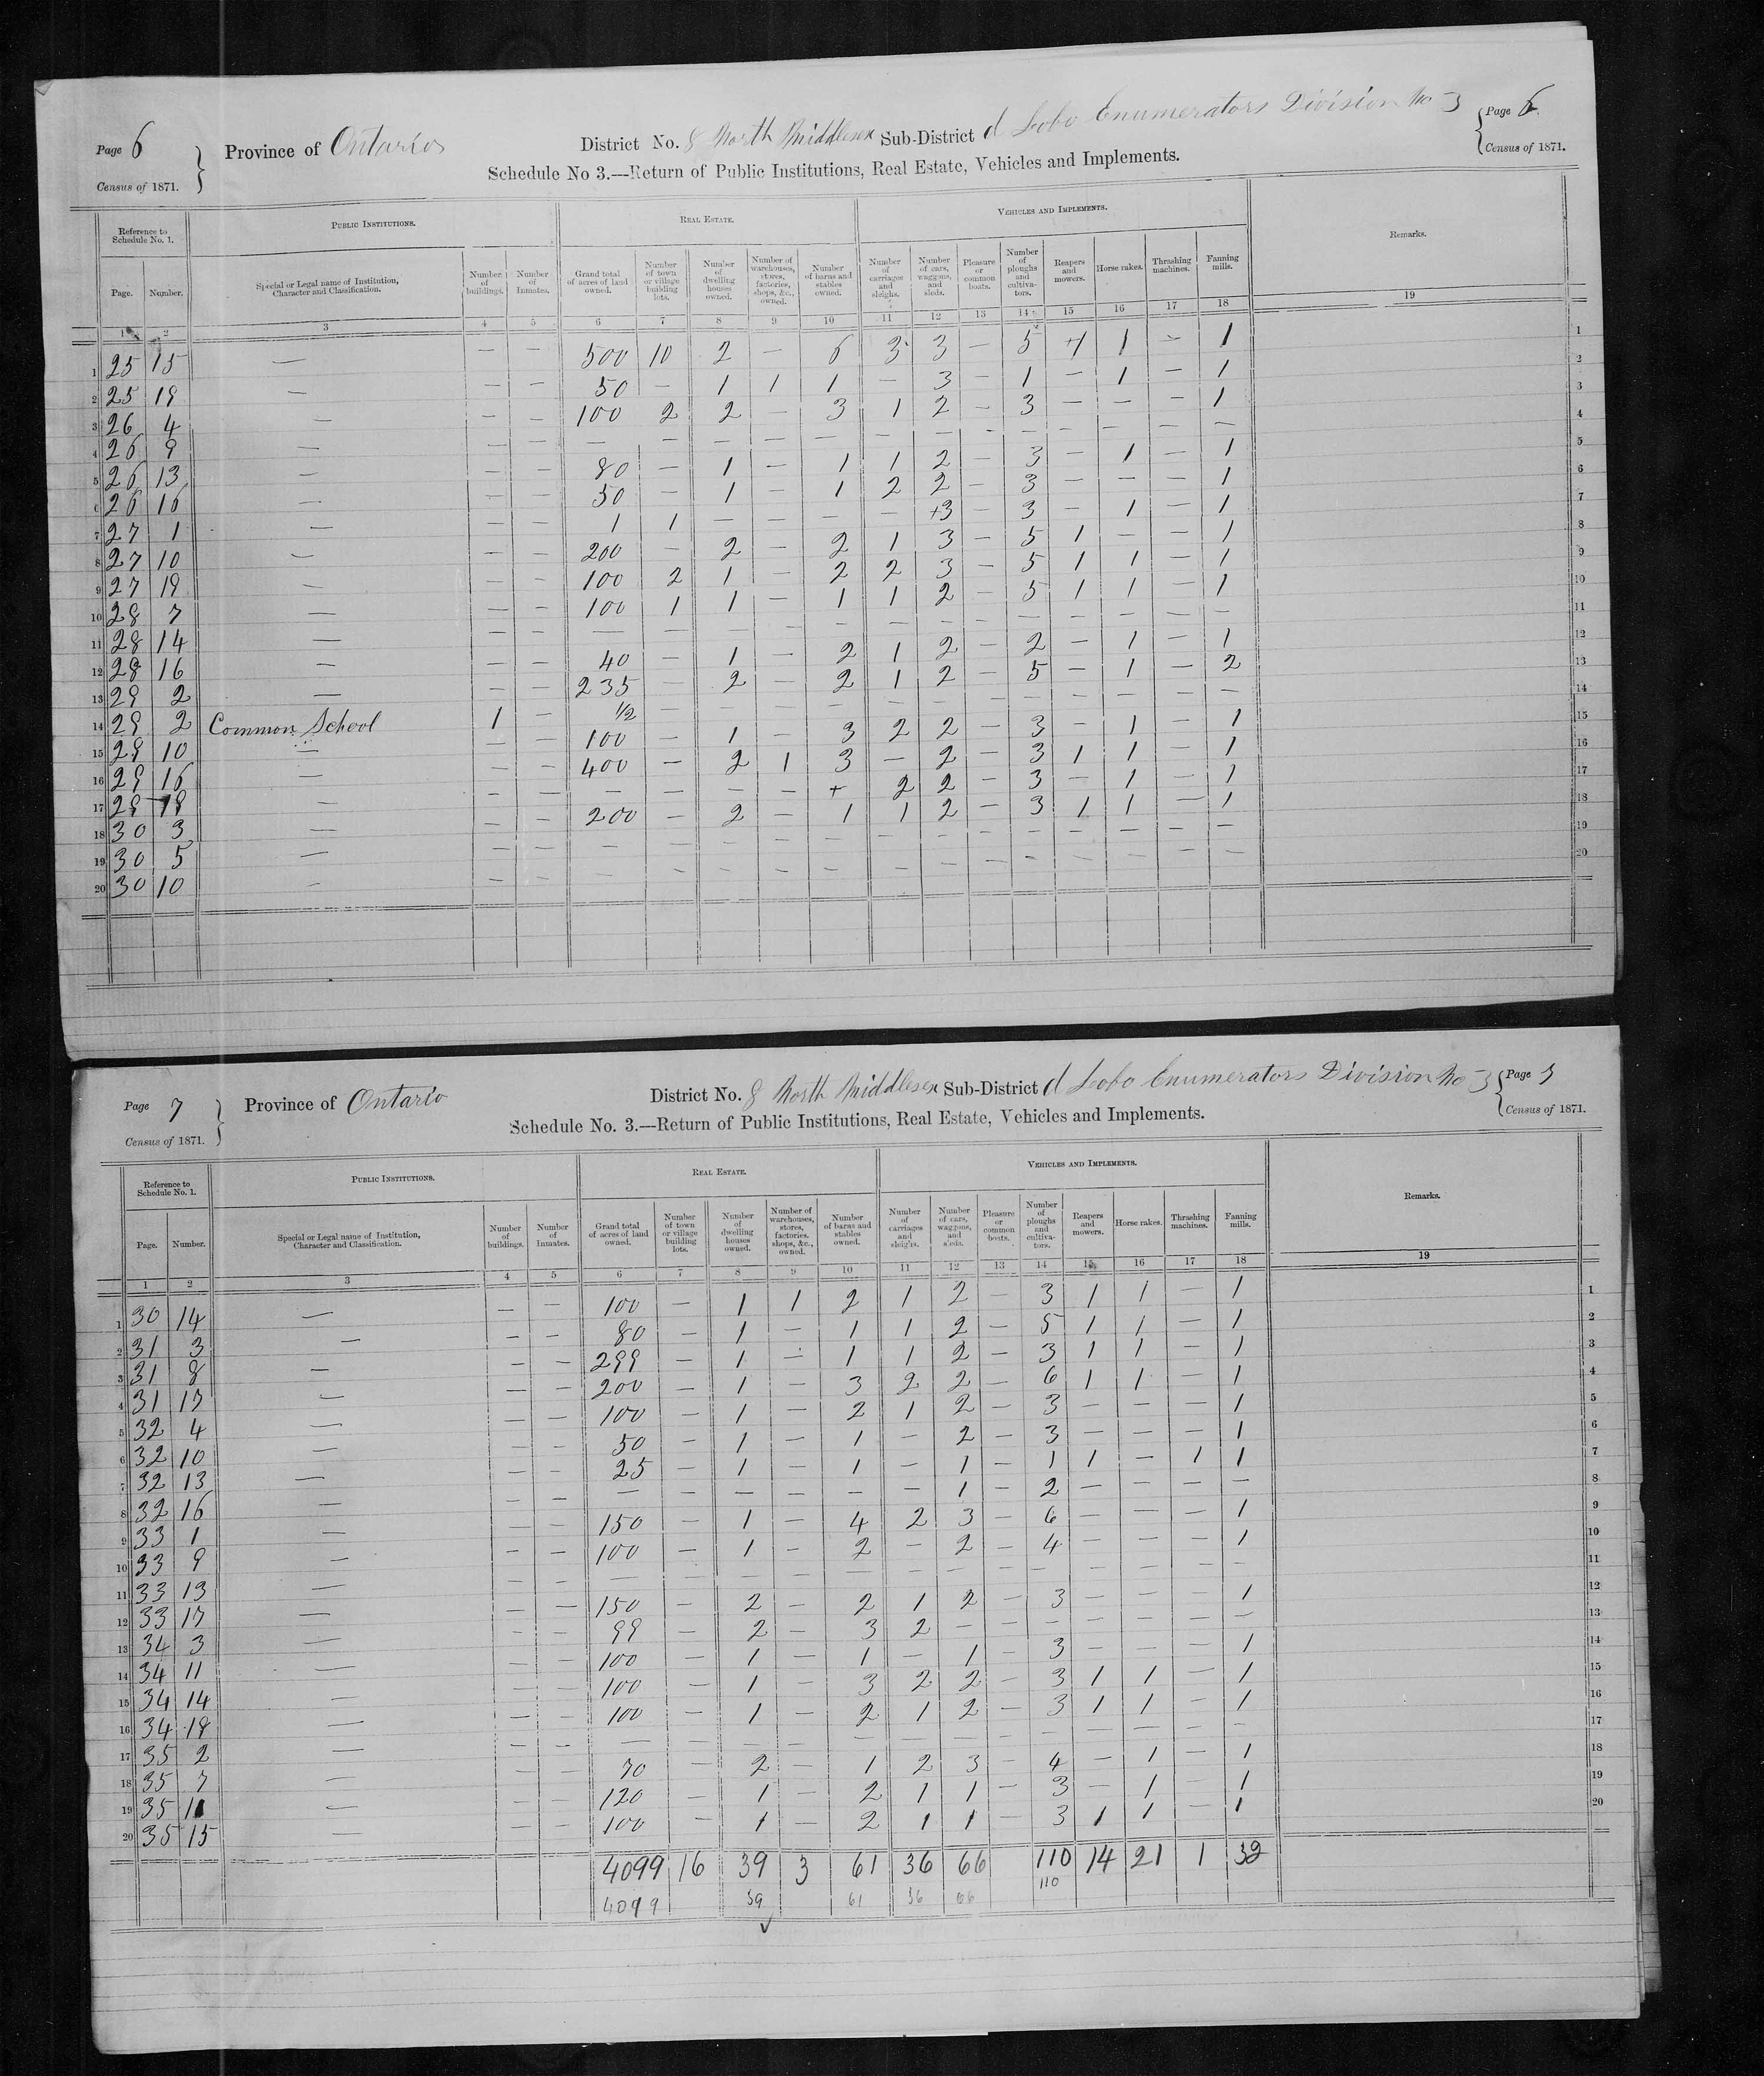 Page 6 Province of Ontario District No. 8 North Middlesex Sub-District d Lobo Enumerators Division No 3 Page 6
Census of 1871. Schedule No 3.—Return of Public Institutions, Real Estate, Vehicles and Implements. Census of 1871.
Reference to Schedule No. 1. PUBLIC INSTITUTIONS. REAL ESTATE. VEHICLES AND IMPLEMENTS. Remarks.
Page. Number. Special or Legal name of Institution, Character and Classification. Number of buildings. Number of Inmates. Grand total of acres of land owned. Number of town or village building lots. Number of dwelling houses owned. Number of warehouses, stores, factories, shops, &c., owned. Number of barns and stables owned. Number of carriages and sleighs. Number of cars, waggons, and sleds. Pleasure or common boats. Number of ploughs and cultivators. Reapers and mowers. Horse rakes. Thrashing machines. Fanning mills.
1 2 3 4 5 6 7 8 9 10 11 12 13 14 15 16 17 18 19
1 25 15 — — — 500 10 2 — 6 3 3 — 5 1 1 — 1 1
2 25 19 — — — 50 — 1 1 1 — 3 — 1 — 1 — 1 2
3 26 4 — — — 100 2 2 — 3 1 2 — 3 — — — 1 3
4 26 9 — — — — — — — — — — — — — — — — 4
5 26 13 — — — 80 — 1 — 1 1 2 — 3 — 1 — 1 5
6 26 16 — — — 50 — 1 — 1 2 2 — 3 — — — 1 6
7 27 1 — — — 1 1 — — — — +3 — 3 — 1 — 1 7
8 27 10 — — — 200 — 2 — 2 1 3 — 5 1 — — 1 8
9 27 19 — — — 100 2 1 — 2 2 3 — 5 1 1 — 1 9
10 28 7 — — — 100 1 1 — 1 1 2 — 5 1 1 — 1 10
11 28 14 — — — — — — — — — — — — — — — — 11
12 28 16 — — — 40 — 1 — 2 1 2 — 2 — 1 — 1 12
13 29 2 — — — 235 — 2 — 2 1 2 — 5 — 1 — 2 13
14 29 2 Common School 1 — 1/2 — — — — — — — — — — — — 14
15 29 10 — — — 100 — 1 — 3 2 2 — 3 — 1 — 1 15
16 29 16 — — — 400 — 2 1 3 — 2 — 3 1 1 — 1 16
17 29 18 — — — — — — — + 2 2 — 3 — 1 — 1 17
18 30 3 — — — 200 — 2 — 1 1 2 — 3 1 1 — 1 18
19 30 5 — — — — — — — — — — — — — — — — 19
20 30 10 — — — — — — — — — — — — — — — — 20
Page 7 Province of Ontario District No. 8 North Middlesex Sub-District d Lobo Enumerators Division No 3 Page 7
Census of 1871. Schedule No. 3.—Return of Public Institutions, Real Estate, Vehicles and Implements. Census of 1871.
Reference to Schedule No. 1. PUBLIC INSTITUTIONS. REAL ESTATE. VEHICLES AND IMPLEMENTS. Remarks.
Page. Number. Special or Legal name of Institution, Character and Classification. Number of buildings. Number of Inmates. Grand total of acres of land owned. Number of town or village building lots. Number of dwelling houses owned. Number of warehouses, stores, factories, shops, &c., owned. Number of barns and stables owned. Number of carriages and sleighs. Number of cars, waggons, and sleds. Pleasure or common boats. Number of ploughs and cultivators. Reapers and mowers. Horse rakes. Thrashing machines. Fanning mills.
1 2 3 4 5 6 7 8 9 10 11 12 13 14 15 16 17 18 19
1 30 14 — — — 100 — 1 1 2 1 2 — 3 1 1 — 1 1
2 31 3 — — — 80 — 1 — 1 1 2 — 5 1 1 — 1 2
3 31 8 — — — 299 — 1 — 1 1 2 — 3 1 1 — 1 3
4 31 17 — — — 200 — 1 — 3 2 2 — 6 1 1 — 1 4
5 32 4 — — — 100 — 1 — 2 1 2 — 3 — — — 1 5
6 32 10 — — — 50 — 1 — 1 — 2 — 3 — — — 1 6
7 32 13 — — — 25 — 1 — 1 — 1 — 1 1 — 1 1 7
8 32 16 — — — — — — — — — 1 — 2 — — — — 8
9 33 1 — — — 150 — 1 — 4 2 3 — 6 — — — 1 9
10 33 9 — — — 100 — 1 — 2 — 2 — 4 — — — 1 10
11 33 13 — — — — — — — — — — — — — — — — 11
12 33 17 — — — 150 — 2 — 2 1 2 — 3 — — — 1 12
13 34 3 — — — 99 — 2 — 3 2 — — — — — — — 13
14 34 11 — — — 100 — 1 — 1 — 1 — 3 — — — 1 14
15 34 14 — — — 100 — 1 — 3 2 2 — 3 1 1 — 1 15
16 34 18 — — — 100 — 1 — 2 1 2 — 3 1 1 — 1 16
17 35 2 — — — — — — — — — — — — — — — — 17
18 35 7 — — — 70 — 2 — 1 2 3 — 4 — 1 — 1 18
19 35 11 — — — 120 — 1 — 2 1 1 — 3 — 1 — 1 19
20 35 15 — — — 100 — 1 — 2 1 1 — 3 1 1 — 1 20
4099 16 39 3 61 36 66 110 14 21 1 32
4099 39 61 36 66 110